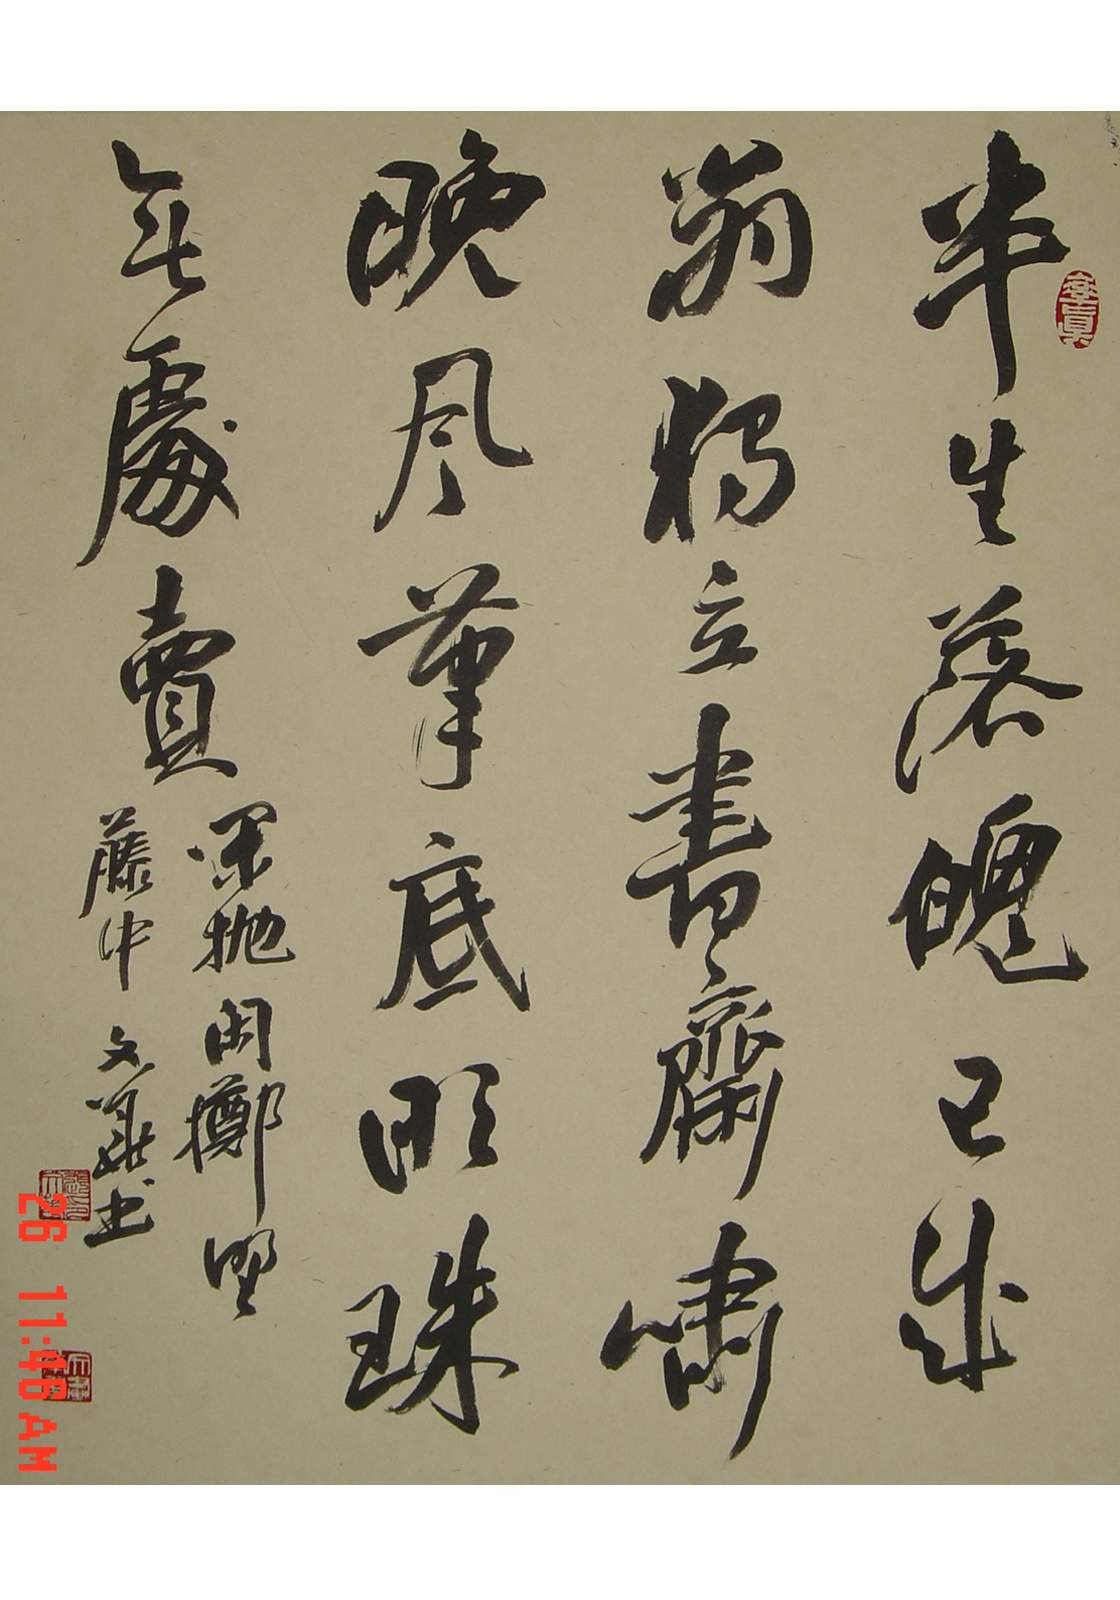 半生落魄已成
翁獨立書齋嘯
晚风筆底明珠
無處賣
閑抛閑擲野
藤中 文華书
26 11:46 AM